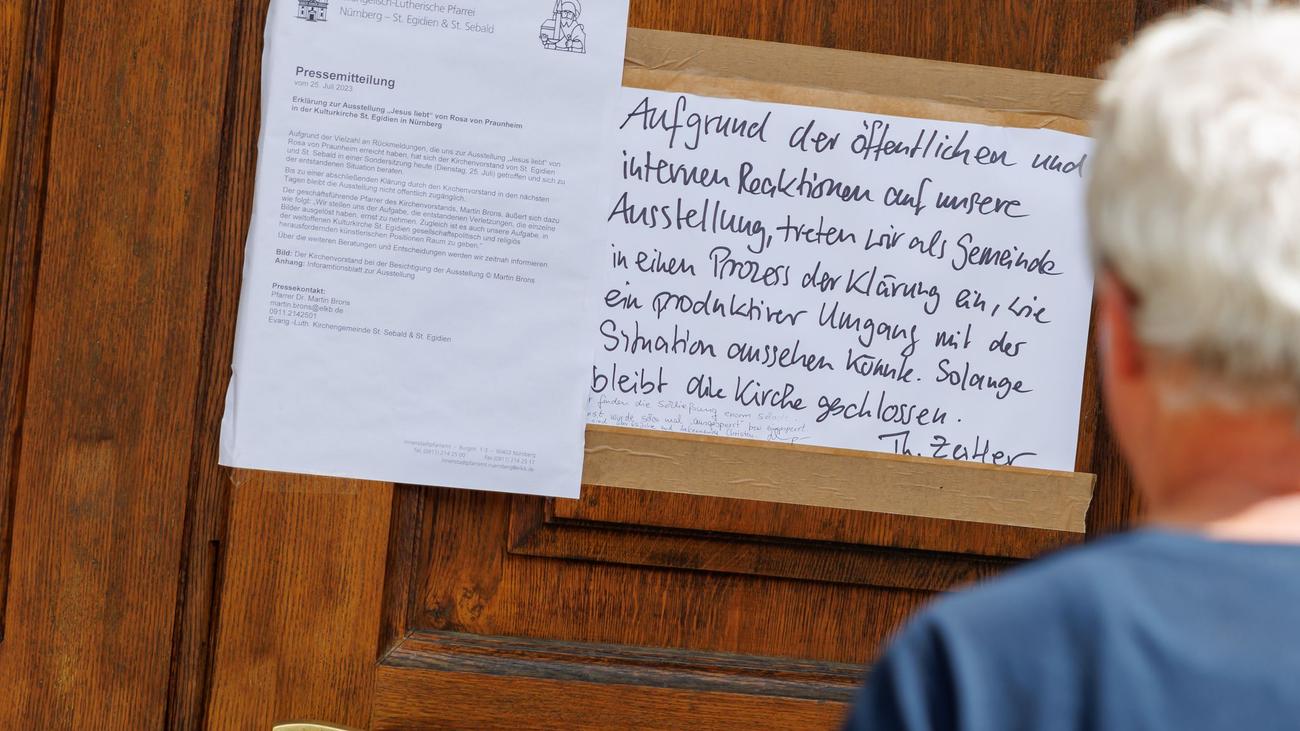 Evangelisch-Lutherische Pfarrei
Nürnberg – St. Egidien & St. Sebald
Pressemitteilung
vom 25. Juli 2023
Erklärung zur Ausstellung „Jesus liebt" von Rosa von Praunheim
in der Kulturkirche St. Egidien in Nürnberg
Aufgrund der Vielzahl an Rückmeldungen, die uns zur Ausstellung „Jesus liebt" von
Rosa von Praunheim erreicht haben, hat sich der Kirchenvorstand von St. Egidien
und St. Sebald in einer Sondersitzung heute (Dienstag, 25. Juli) getroffen und sich zu
der entstandenen Situation beraten.
Bis zu einer abschließenden Klärung durch den Kirchenvorstand in den nächsten
Tagen bleibt die Ausstellung nicht öffentlich zugänglich.
Der geschäftsführende Pfarrer des Kirchenvorstands, Martin Brons, äußert sich dazu
wie folgt: „Wir stellen uns der Aufgabe, die entstandenen Verletzungen, die einzelne
Bilder ausgelöst haben, ernst zu nehmen. Zugleich ist es auch unsere Aufgabe, in
der weltoffenen Kulturkirche St. Egidien gesellschaftspolitisch und religiös
herausfordernden künstlerischen Positionen Raum zu geben."
Über die weiteren Beratungen und Entscheidungen werden wir zeitnah informieren.
Bild: Der Kirchenvorstand bei der Besichtigung der Ausstellung © Martin Brons
Anhang: Inforamtionsblatt zur Ausstellung
Pressekontakt:
Pfarrer Dr. Martin Brons
martin.brons@elkb.de
0911.2142501
Evang.-Luth. Kirchengemeinde St. Sebald & St. Egidien
Innenstadtpfarramt – Burgstr. 1-3 – 90403 Nürnberg
Tel. (0911) 214 25 00 Fax (0911) 214 25 17
innenstadtpfarramt.nuernberg@elkb.de
Aufgrund der öffentlichen und
internen Reaktionen auf unsere
Ausstellung, treten wir als Gemeinde
in einen Prozess der Klärung ein, wie
ein produktiver Umgang mit der
Situation aussehen könnte. Solange
bleibt die Kirche geschlossen.
finden die Schließung enorm
wurde schon mal „ausgesperrt" bzw eingesperrt
Christen
Th. Zeitler